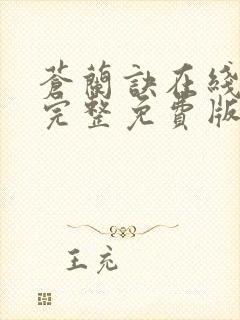 蒼蘭訣在綫
完整免費版
王充